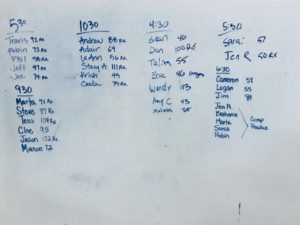 5:30
Travis 92 RX
Robin 72 RX
Phil 98 RX
Jeff 67 RX
Joe 74 RX
930
Marta 71 RX
Steve 87 RX
Tess 104 RX
Cloe 95
Jason 102 RX
Manon 72
1030
Andrew 88 RX
Adair 69
LeAnn 76 RX
Stacy A 111 RX
Krish 45
Carla 75 RX
4:30
Sean 40
Dan 100 RX
Talin 55
Eric 46
Wendy
Amy C 45
55
5:30
Sarai 57
Jen R 50 RX
6:30
Cameron 58
Logan 55
Jim 84
Jen A.
Stephanie
Marta
Sonia
Robin
Comp
Practice